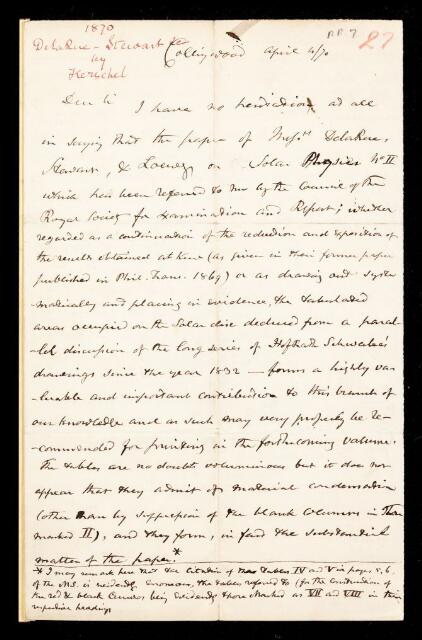 1870
DelaRue - Stewart &c
by
Herschel
RR 7
27
Collingwood April 4/70
Dear Sir
I have no hesitation at all
in saying that the paper of Mess.rs DelaRue,
Stewart, & Loewy on Solar Physics No II
which has been referred to me by the Council of the
Royal Society for Examination and Report; whether
regarded as a continuation of the reduction and exposition of
the results obtained at Kew (as given in their former paper
published in Phil. Trans. 1869) or as drawing out syste
-matically and placing in evidence, the tabulated
areas occupied on the Solar disc deduced from a paral-
-lel discussion of the long series of Hofrath Schwabe's
drawings since the year 1832 — forms a highly va-
-luable and important contribution to this branch of
our knowledge and as such may very properly be re-
-commended for printing in the forthcoming volume.
The tables are no doubt voluminous but it does not
appear that they admit of material condensation
(other than by suppression of the blank columns in
marked II), and they form, in fact the substantial
matter of the paper.*
* I may remark here that the citation of Tables IV and V in pages 5, 6.
of the M.S. is evidently erroneous, the tables referred to (for the construction of
the red & black curves) being evidently those marked as VII and VIII in their
respective headings